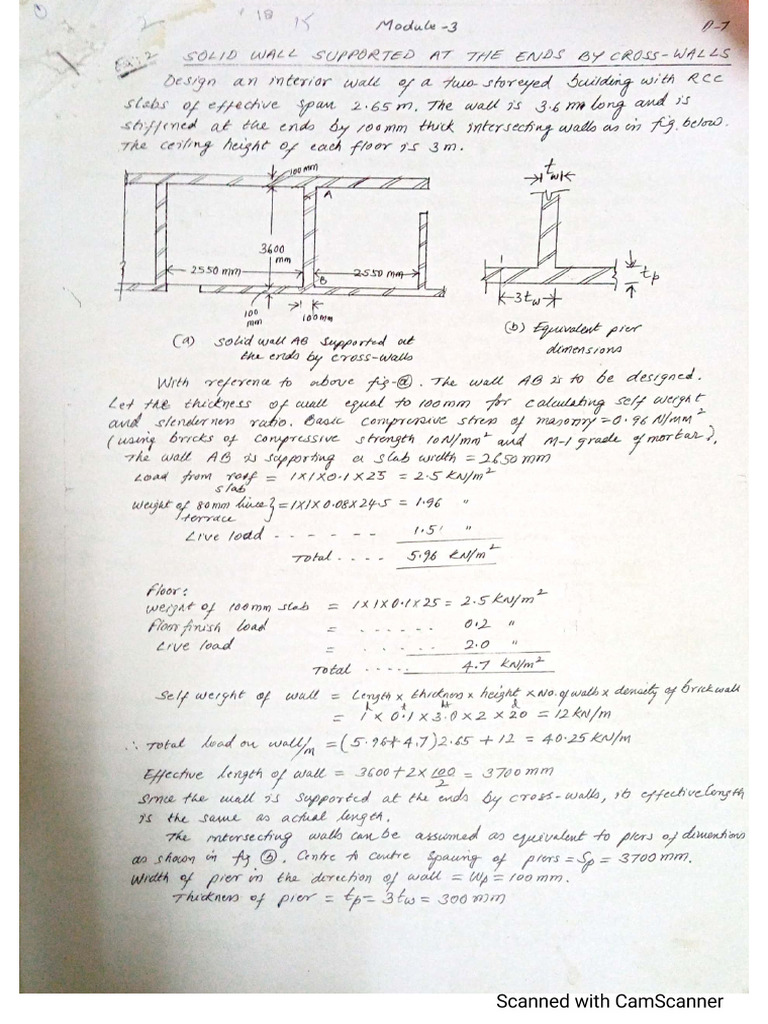 18
15
Module-3
P-7
2
Ex: 2 SOLID WALL SUPPORTED AT THE ENDS BY CROSS-WALLS
Design an interior wall of a two storeyed building with RCC
slabs of effective span 2.65m. The wall is 3.6 m long and is
stiffened at the ends by 100mm thick intersecting walls as in fig. below.
The ceiling height of each floor is 3m.
100mm
A
3600
mm
2550 mm
B
2550 mm
100
mm
100mm
tw
tp
3tw
(a) Solid wall AB supported at
the ends by cross-walls
(b) Equivalent pier
dimensions
With reference to above fig-ⓐ. The wall AB is to be designed.
Let the thickness of wall equal to 100mm for calculating self weight
and slenderness ratio. Basic compressive stress of masonry = 0.96 N/mm²
(using bricks of compressive strength 10N/mm² and M-1 grade of mortar).
The wall AB is supporting a slab width = 2650mm
Load from roof slab = 1X1X0.1X25 = 2.5 KN/m²
Weight of 80mm lime terrace } = 1X1X0.08X24.5 = 1.96 "
Live load - - - - - - 1.5 "
Total .... 5.96 KN/m²
Floor:
Weight of 100mm slab = 1X1X0.1X25 = 2.5 KN/m²
Floor finish load = ...... 0.2 "
Live load = ...... 2.0 "
Total ..... 4.7 KN/m²
Self weight of wall = Length x thickness x height x No. of walls x density of brick wall
= 1 x 0.1 x 3.0 x 2 x 20 = 12 KN/m
∴ Total load on wall/m = (5.96+4.7)2.65 + 12 = 40.25 KN/m
Effective length of wall = 3600+2x 100/2 = 3700mm
Since the wall is supported at the ends by cross-walls, its effective length
is the same as actual length.
The intersecting walls can be assumed as equivalent to piers of dimentions
as shown in fig ⓑ. Centre to centre spacing of piers = Sp = 3700 mm.
Width of pier in the direction of wall = Wp = 100mm.
Thickness of pier = tp = 3tw = 300mm
Scanned with CamScanner